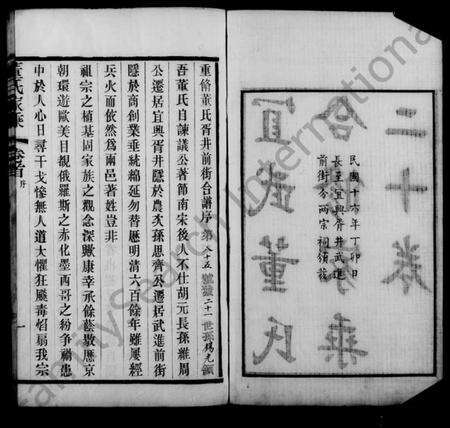 二十卷
宜武董氏
民國十六年丁卯日
長至宜興胥井武進
前街分兩宗祠領藏
重脩董氏胥井前街合譜序
吾董氏自諫議公著節南宋後人不仕胡元長孫維周
公遷居宜興胥井隱於農次孫思齊公遷居武進前街
隱於商創業垂統綿延勿替歷明清六百餘年雖屢經
兵火而依然為兩邑著姓豈非
祖宗之植基固家族之觀念深歟康幸承餘蔭數歷京
朝環遊歐美目覩俄羅斯之赤化墨西哥之紛爭禍患
中於人心日尋干戈慘無人道大懼狂飈毒燄扇我宗
董氏家乘
卷首
序
一
FamilySearch International